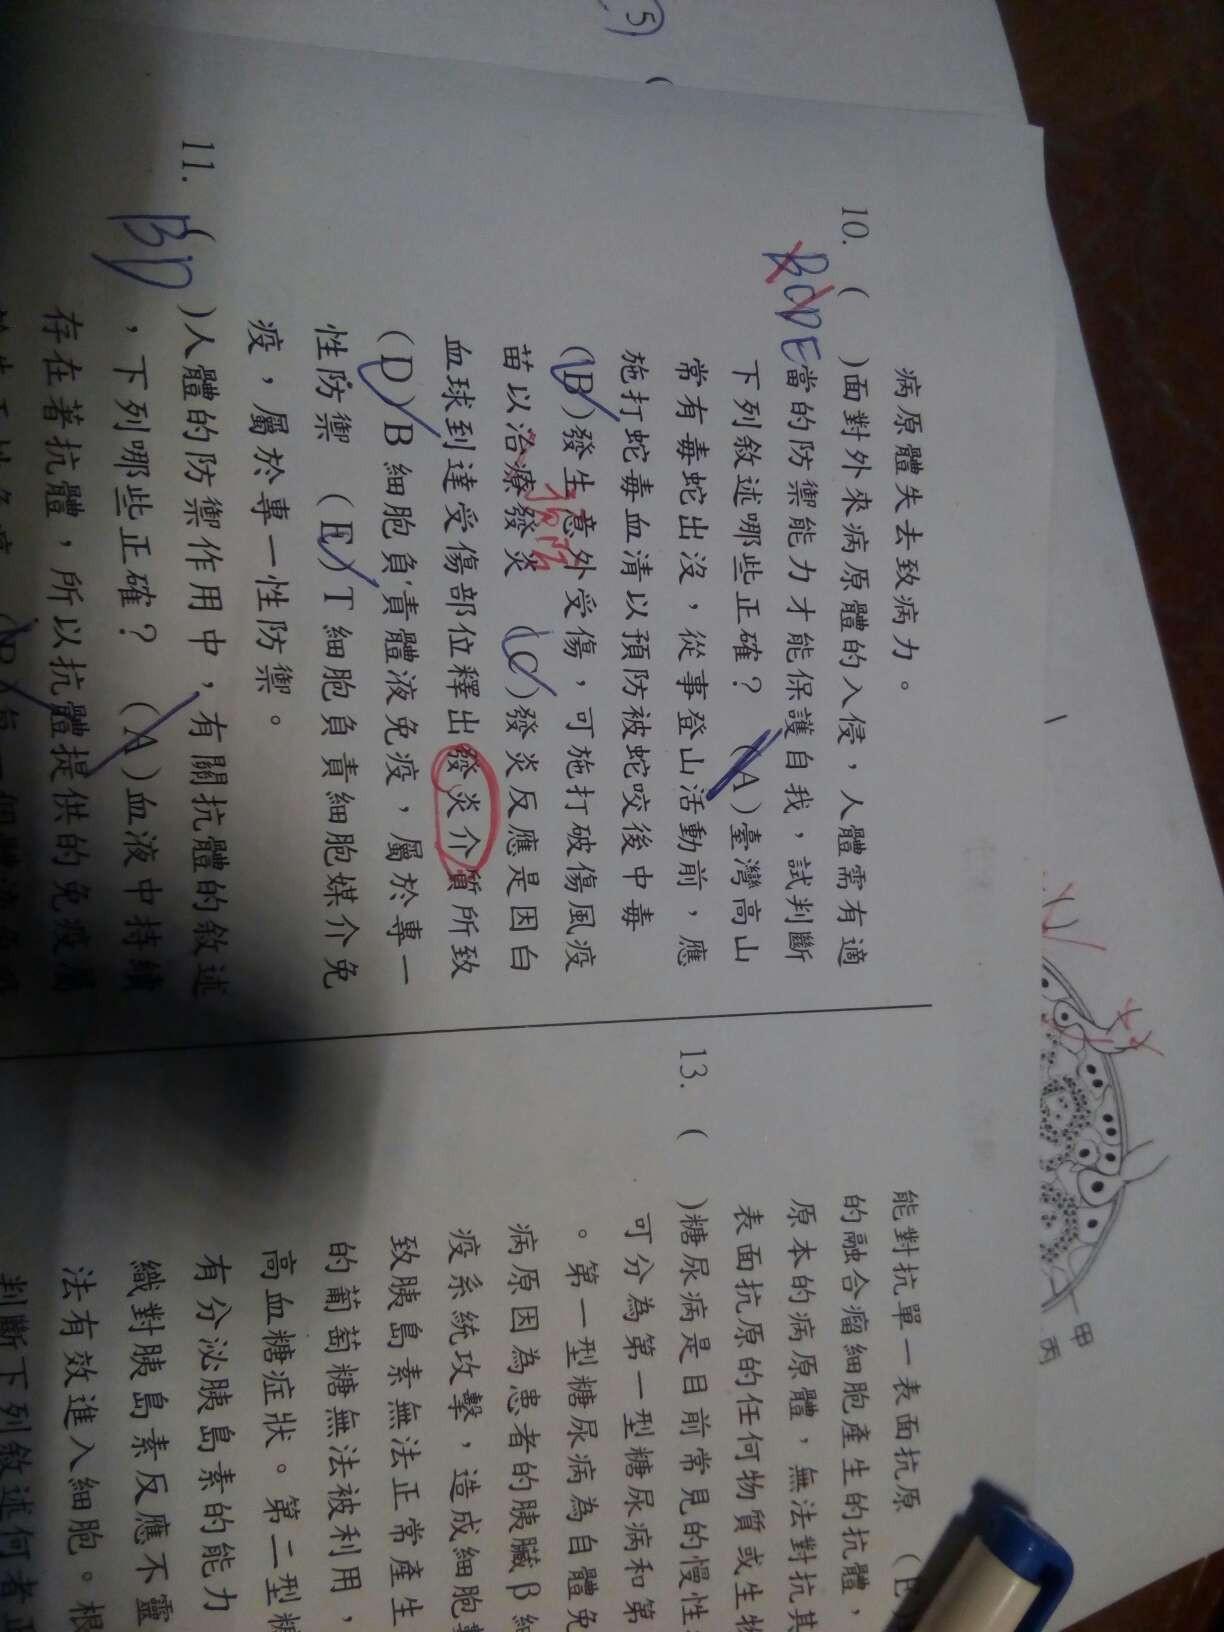 5
病原體失去致病力。
10. ( )面對外來病原體的入侵，人體需有適
BCDE
當的防禦能力才能保護自我，試判斷
下列敘述哪些正確？ (A)臺灣高山
常有毒蛇出沒，從事登山活動前，應
施打蛇毒血清以預防被蛇咬後中毒
(B)發生意外受傷，可施打破傷風疫
預防
苗以治療發炎 (C)發炎反應是因白
血球到達受傷部位釋出發炎介質所致
(D)B細胞負責體液免疫，屬於專一
性防禦 (E)T細胞負責細胞媒介免
疫，屬於專一性防禦。
11. ( )人體的防禦作用中，有關抗體的敘述
BD
，下列哪些正確？ (A)血液中持續
存在著抗體，所以抗體提供的免疫屬
甲
丙
能對抗單一表面抗原
的融合瘤細胞產生的抗體，
原本的病原體，無法對抗其
表面抗原的任何物質或生物
13. ( )糖尿病是目前常見的慢性
可分為第一型糖尿病和第
。第一型糖尿病為自體免
病原因為患者的胰臟β細
疫系統攻擊，造成細胞
致胰島素無法正常產生
的葡萄糖無法被利用，
高血糖症狀。第二型糖
有分泌胰島素的能力
織對胰島素反應不靈
法有效進入細胞。根
判斷下列敘述何者正